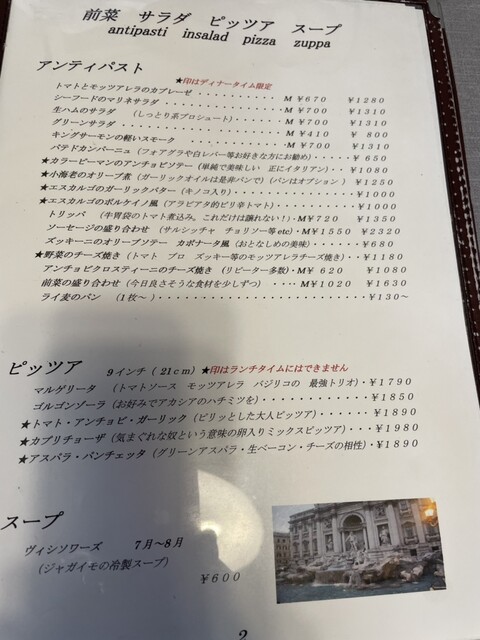 前菜　サラダ　ピッツア　スープ
antipasti　insalad　pizza　zuppa
アンティパスト
★印はディナータイム限定
トマトとモッツアレラのカプレーゼ・・・・・・・・・・・M￥670　￥1280
シーフードのマリネサラダ・・・・・・・・・・・・・・・M￥700　￥1310
生ハムのサラダ　（しっとり系プロシュート）・・・・・・・M￥700　￥1310
グリーンサラダ・・・・・・・・・・・・・・・・・・・・M￥410　￥ 800
キングサーモンの軽いスモーク・・・・・・・・・・・・・M￥700　￥1310
パテドカンパーニュ（フォアグラや白レバー等お好きな方にお勧め）・・・・￥ 650
★カラーピーマンのアンチョビソテー（単純で美味しい　正にイタリアン）・・￥1080
★小海老のオリーブ煮（ガーリックオイルは是非パンで）（パンはオプション ）￥1250
★エスカルゴのガーリックバター（キノコ入り）・・・・・・・・・・・・￥1000
★エスカルゴのポルケイノ風（アラビアタ的ピリ辛トマト）・・・・・・・￥1000
トリッパ　（牛胃袋のトマト煮込み。これだけは譲れない！）・M￥720　￥1350
ソーセージの盛り合わせ（サルシッチャ　チョリソー等etc）・M￥1550　￥2320
ズッキーニのオリーブソテー　カポナータ風（おとなしめの美味）・・・・・￥680
★野菜のチーズ焼き（トマト　プロ　ズッキー等のモッツアレラチーズ焼き）・・￥1180
アンチョビクロスティーニのチーズ焼き　（リピーター多数）・M￥ 620　￥1080
前菜の盛り合わせ（今日良さそうな食材を少しずつ）　・・・M￥1020　￥1630
ライ麦のパン　（1枚～）・・・・・・・・・・・・・・・・・・・・￥130～
ピッツア　9インチ（ 21cm）★印はランチタイムにはできません
マルゲリータ　（トマトソース　モッツアレラ　バジリコの　最強トリオ）・￥1790
ゴルゴンゾーラ（お好みでアカシアのハチミツを）・・・・・・・・・・￥1850
★トマト・アンチョビ・ガーリック（ピリッとした大人ピッツア）・・・・・￥1890
★カプリチョーザ（気まぐれな奴という意味の卵入りミックスピッツア）・・￥1980
★アスパラ・パンチェッタ（グリーンアスパラ・生ベーコン・チーズの相性）・￥1890
スープ
ヴィシソワーズ　7月～8月
（ジャガイモの冷製スープ）
￥600
2